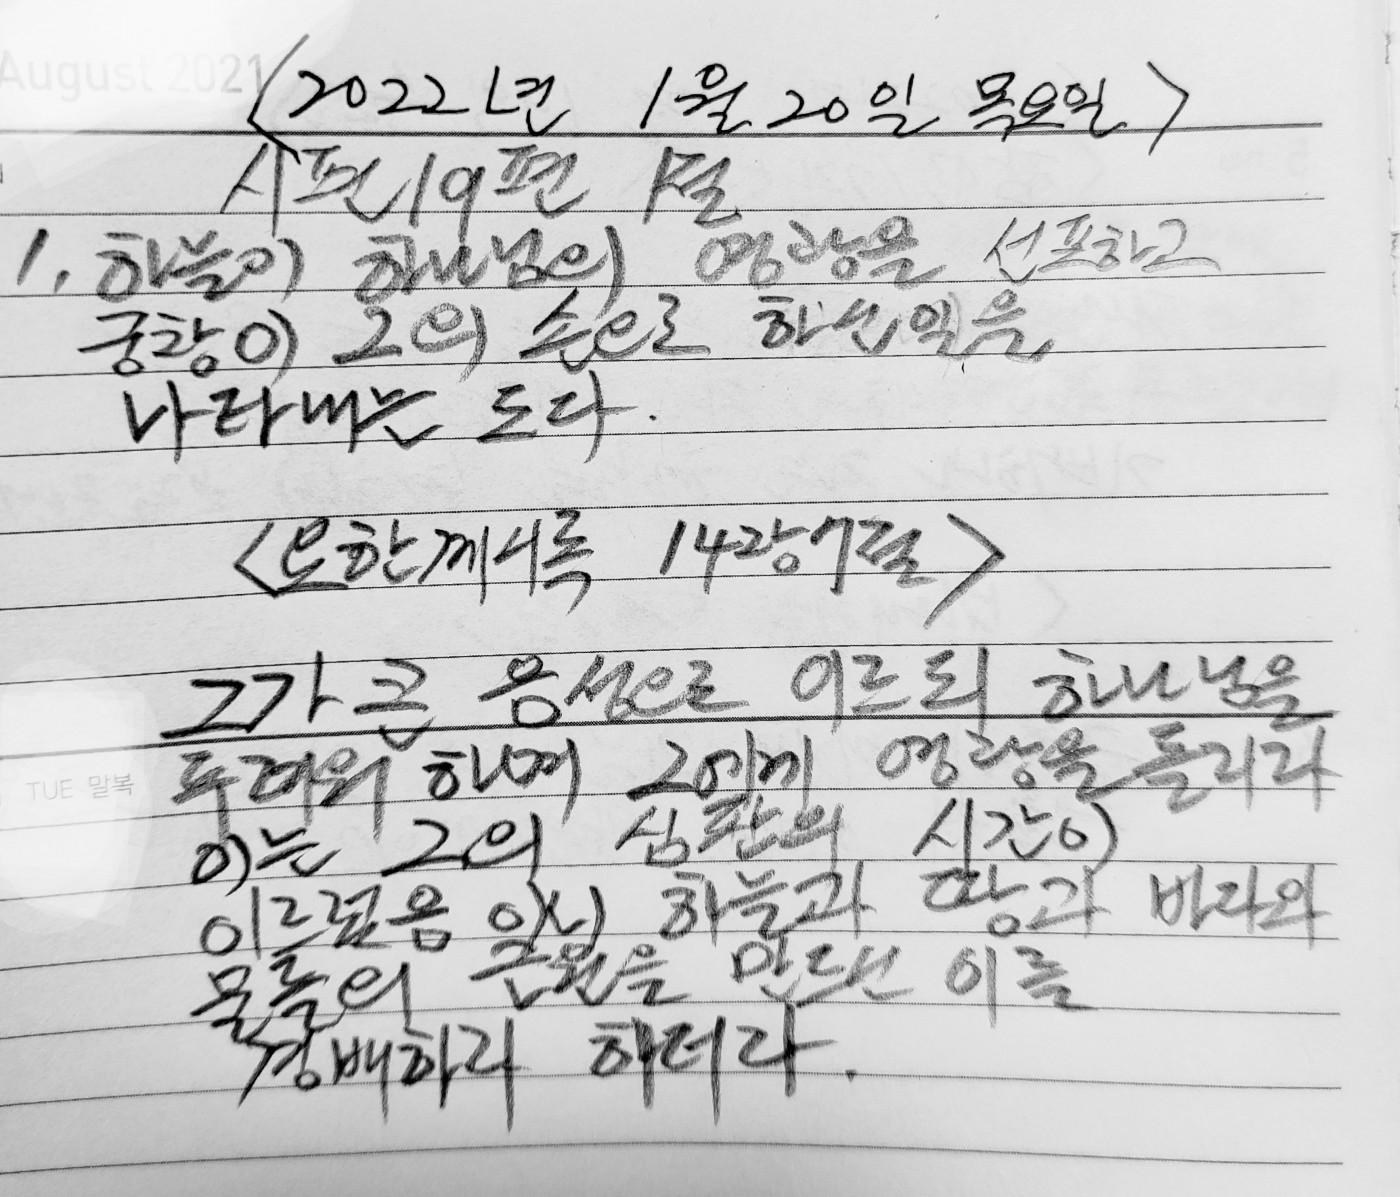 August 2021
<2022년 1월 20일 목요일>
시편19편 1절
1. 하늘이 하나님의 영광을 선포하고
궁창이 그의 손으로 하신일을
나타내는 도다.
<요한계시록 14장7절>
그가 큰 음성으로 이르되 하나님을
두려워 하며 그에게 영광을 돌리라
이는 그의 심판의 시간이
이르렀음 이니 하늘과 땅과 바다와
물들의 근원을 만드신 이를
경배하라 하더라.
TUE 말복